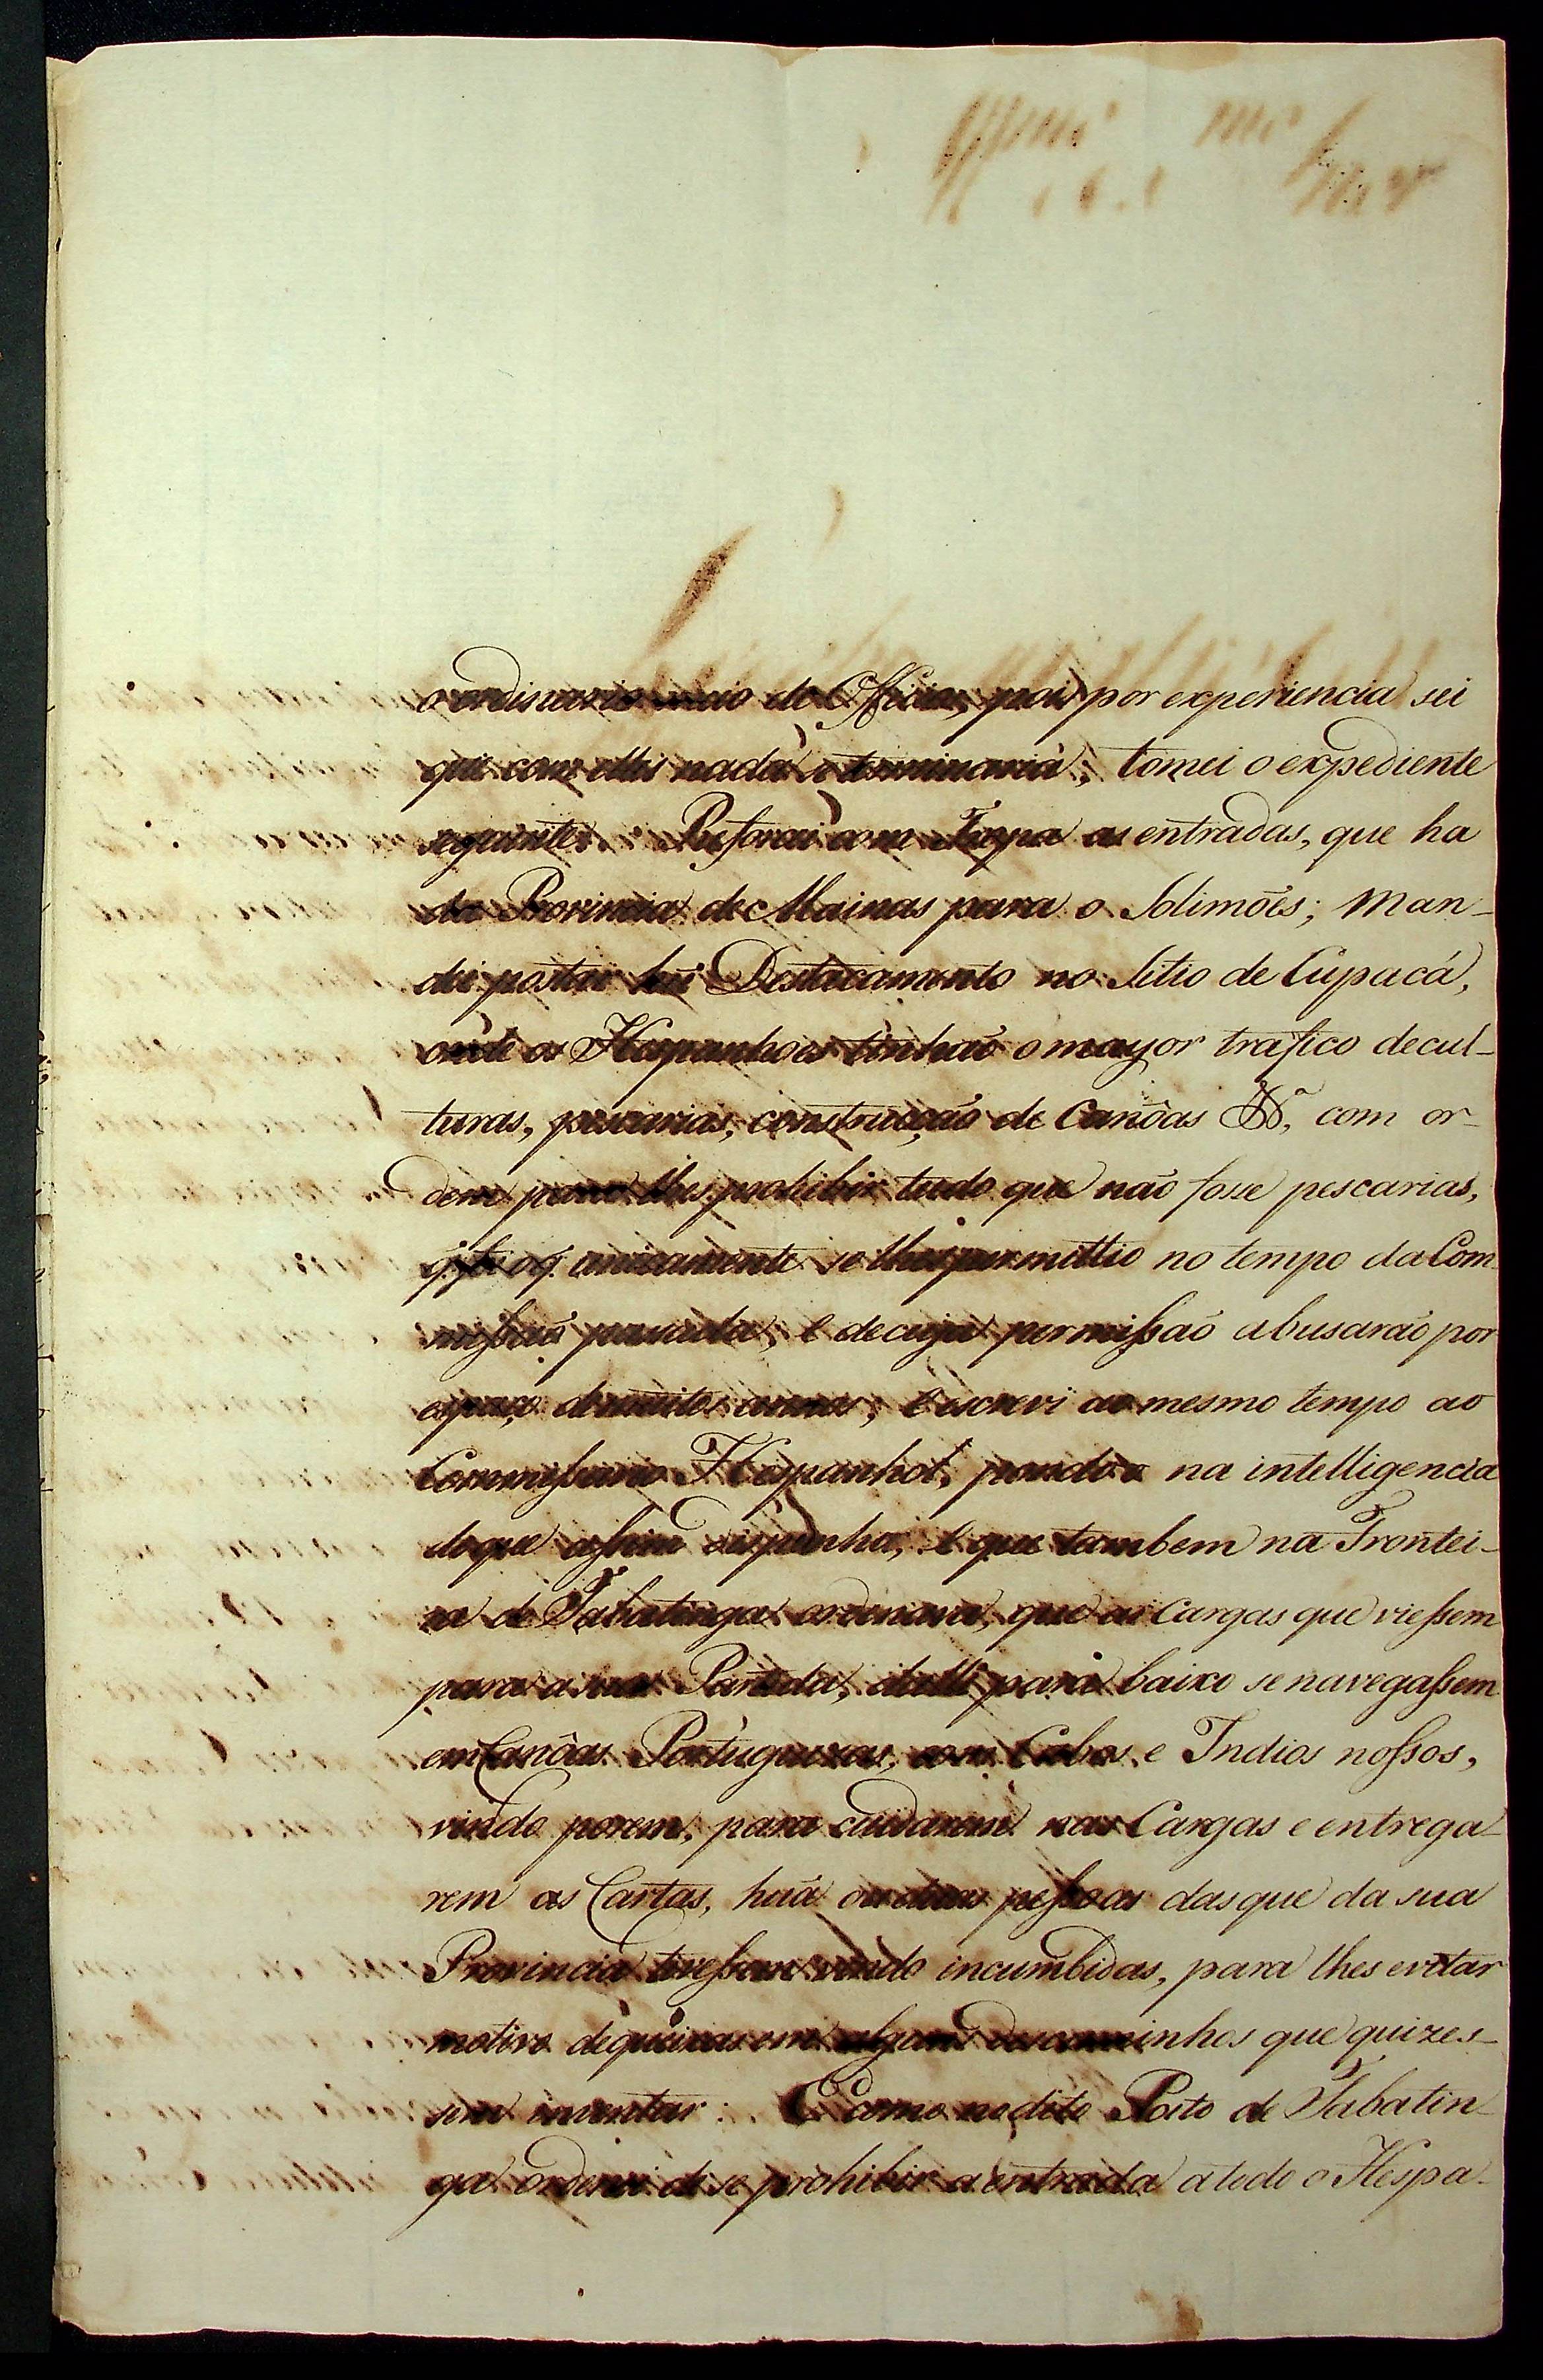 o ordinario meio de Officios, pois por experiencia sei
que com elles nada se terminaria; tomei o expediente
seguinte: Reforcei com Tropa as entradas, que ha
da Provincia de Mainas para o Solimões; Man-
dei postar hũ Destacamento no Sitio de Cupacá,
onde os Hespanhoes tinhaõ o mayor trafico de cul-
turas, pescarias, construcçaõ de Canôas &ª, com or-
dem para lhes prohibir tudo que naõ fosse pescarias,
q. foi o q. unicamente se lhes permittio no tempo da Com
missaõ passada, e de cuja permissaõ abusaraõ por
espaço de muitos annos; e escrevi ao mesmo tempo ao
Commissario Hespanhol, pondo-o na intelligencia
do que assim dispunha; e que tambem na Frontei-
ra de Tabatinga ordenava, que as Cargas que viessem
para a sua Partida, dalli para baixo se navegassem
em Canôas Portuguezas, com Cabos e Indios nossos,
vindo porem, para cuidarem nas Cargas e entrega-
rem as Cartas, huã ou duas pessoas das que da sua
Provincia tivessem vindo incumbidas, para lhes evitar
motivo de queixas em alguns descaminhos que quizes-
sem inventar: E como no dito Posto de Tabatin-
ga ordenei de se prohibir a entrada a todo o Hespa-